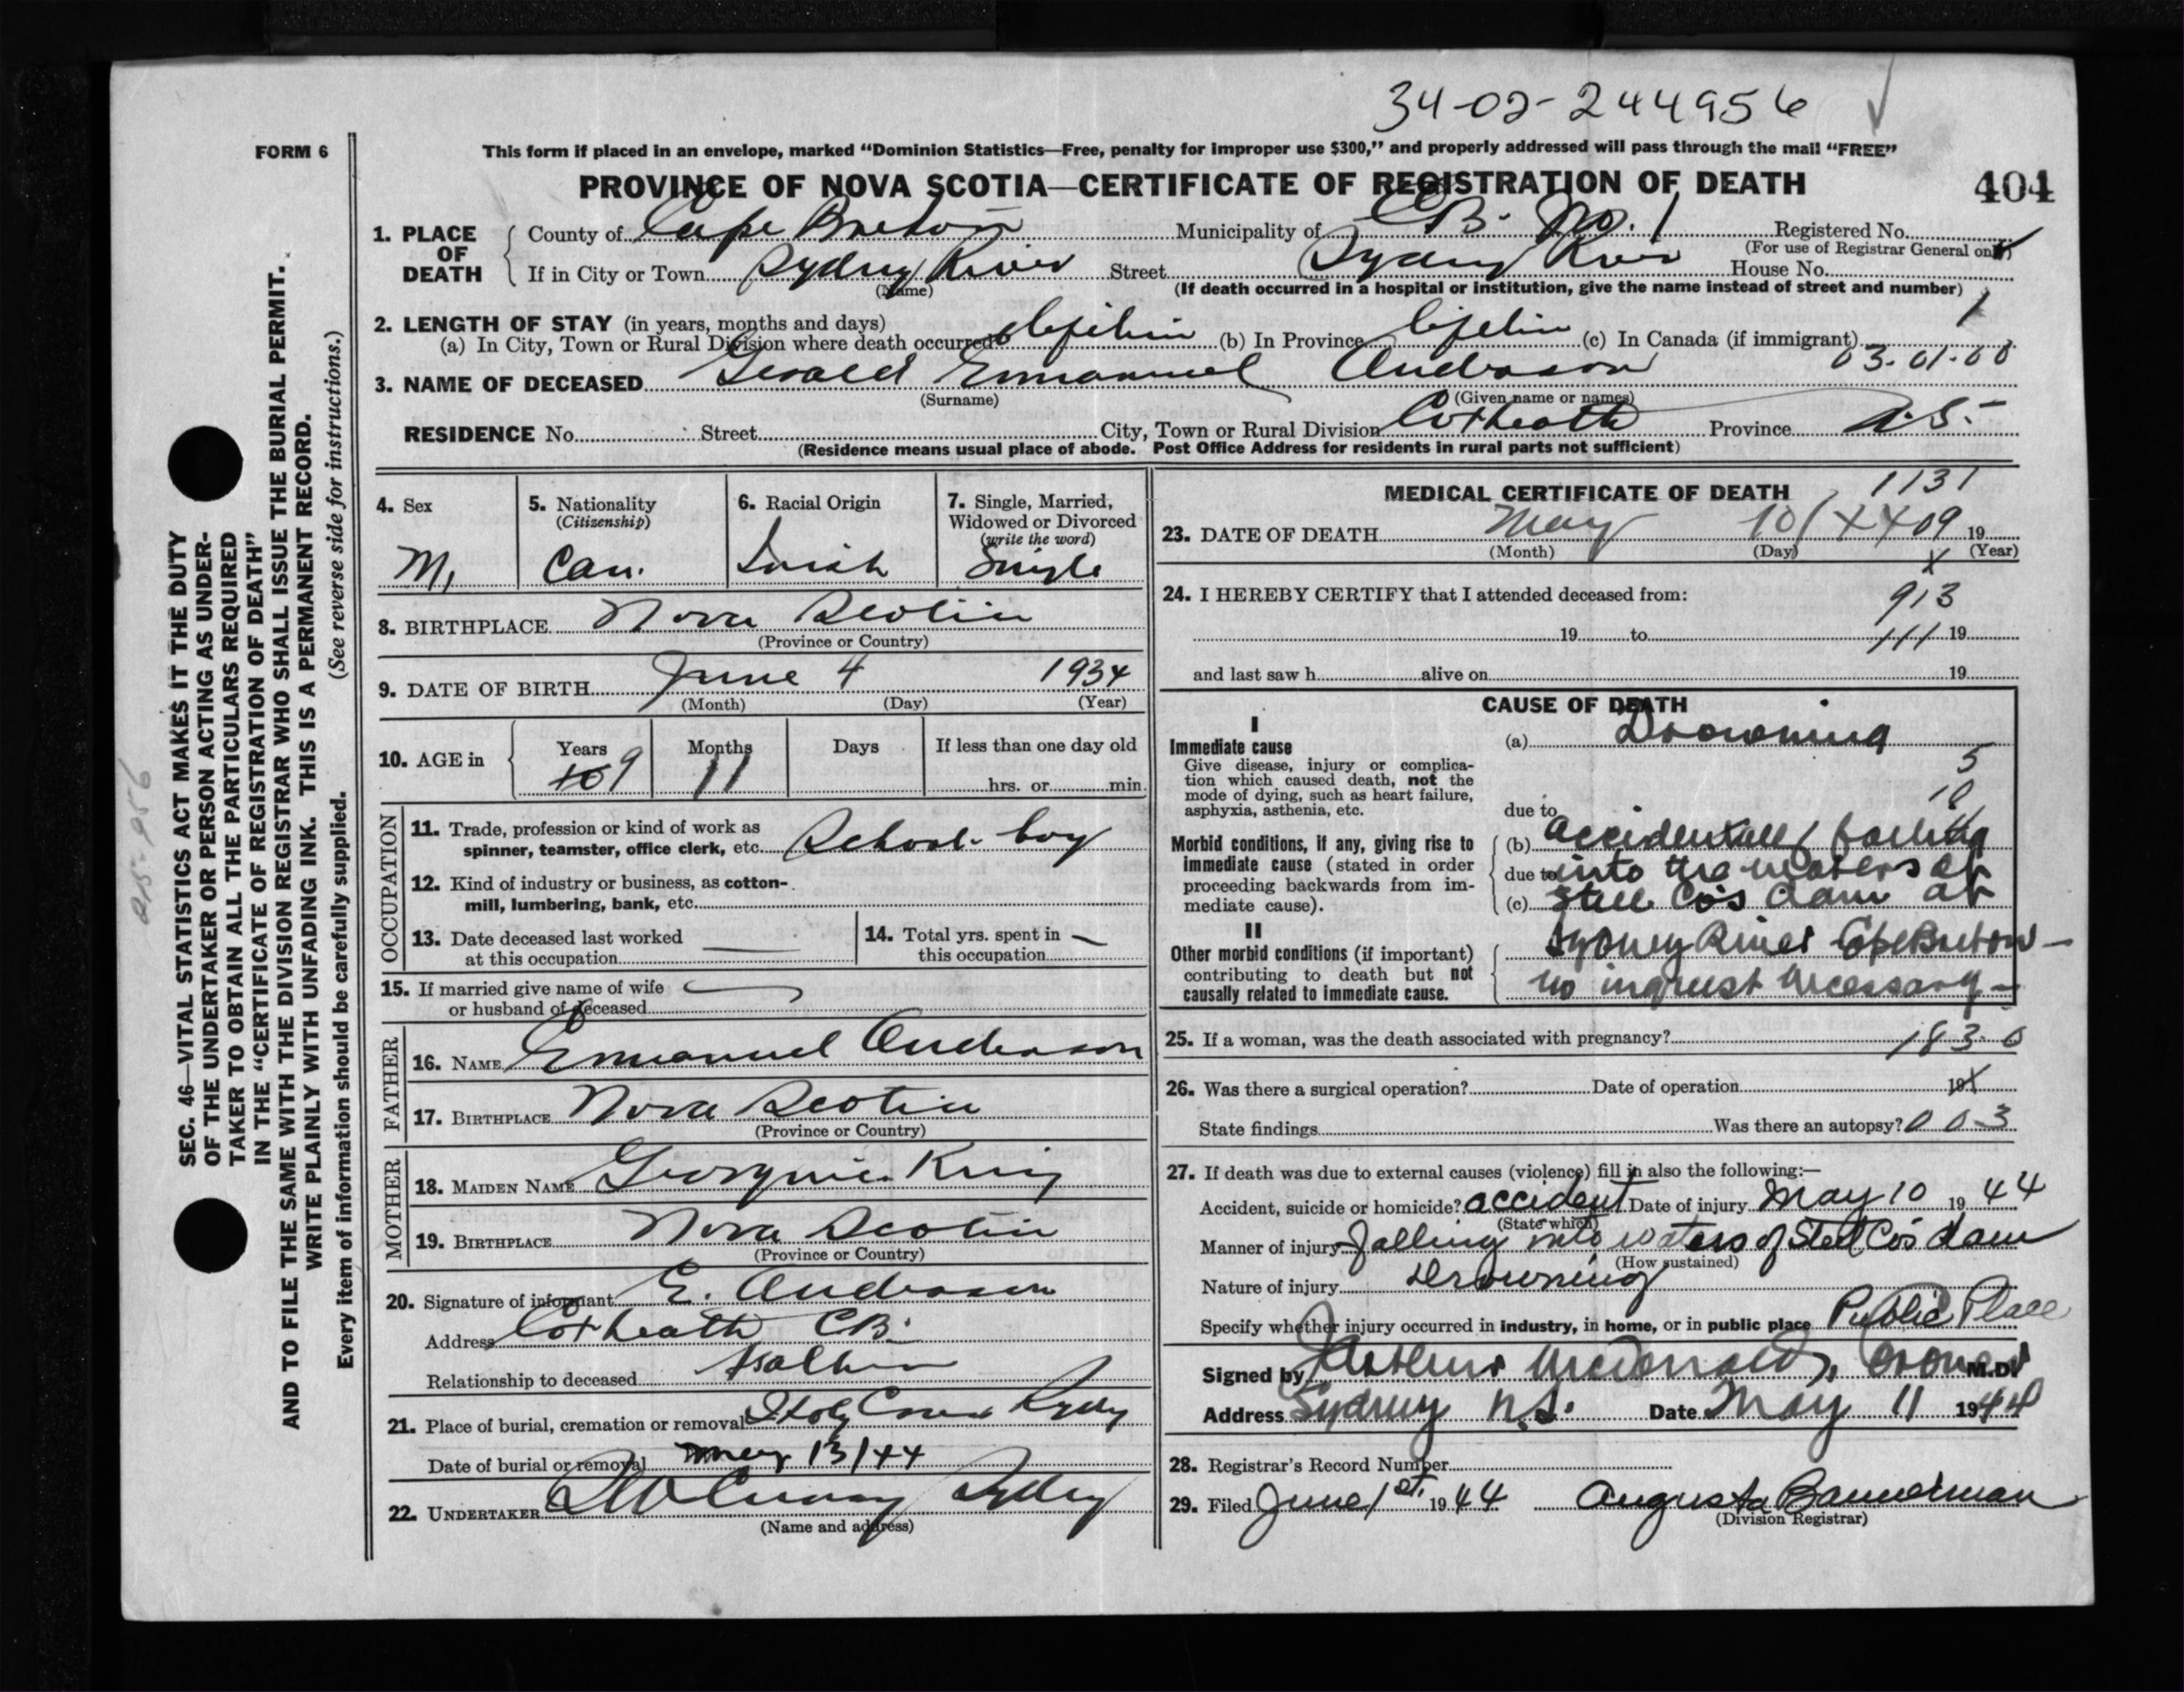 34-02-244956
FORM 6
This form if placed in an envelope, marked "Dominion Statistics—Free, penalty for improper use $300," and properly addressed will pass through the mail "FREE"
PROVINCE OF NOVA SCOTIA—CERTIFICATE OF REGISTRATION OF DEATH
404
1. PLACE OF DEATH
County of Cape Breton Municipality of C.B. No. 1 Registered No.
(For use of Registrar General only)
If in City or Town Sydney River Street Sydney River House No.
(Name) (If death occurred in a hospital or institution, give the name instead of street and number)
2. LENGTH OF STAY (in years, months and days) 1
(a) In City, Town or Rural Division where death occurred (b) In Province (c) In Canada (if immigrant)
03-01-00
3. NAME OF DECEASED Gerald Emmanuel Anderson
(Surname) (Given name or names)
RESIDENCE No. Street City, Town or Rural Division Coxheath Province N.S.
(Residence means usual place of abode. Post Office Address for residents in rural parts not sufficient)
4. Sex M.
5. Nationality (Citizenship) Can.
6. Racial Origin Irish
7. Single, Married, Widowed or Divorced (write the word) Single
8. BIRTHPLACE Nova Scotia
(Province or Country)
9. DATE OF BIRTH June 4 1934
(Month) (Day) (Year)
10. AGE in Years 10 9 Months 11 Days If less than one day old
hrs. or min.
OCCUPATION
11. Trade, profession or kind of work as spinner, teamster, office clerk, etc. School-boy
12. Kind of industry or business, as cotton-mill, lumbering, bank, etc.
13. Date deceased last worked at this occupation
14. Total yrs. spent in this occupation
15. If married give name of wife or husband of deceased
FATHER
16. NAME Emmanuel Anderson
17. BIRTHPLACE Nova Scotia
(Province or Country)
MOTHER
18. MAIDEN NAME Georgina King
19. BIRTHPLACE Nova Scotia
(Province or Country)
20. Signature of informant E. Anderson
Address Coxheath C.B.
Relationship to deceased Father
21. Place of burial, cremation or removal Holy Cross Sydney
Date of burial or removal May 13/44
22. UNDERTAKER Sydney
(Name and address)
MEDICAL CERTIFICATE OF DEATH
1131
23. DATE OF DEATH May 10/44 09 19
(Month) (Day) (Year)
X
24. I HEREBY CERTIFY that I attended deceased from:
913
19 to 111 19
and last saw h alive on 19
CAUSE OF DEATH
I
Immediate cause
Give disease, injury or complication which caused death, not the mode of dying, such as heart failure, asphyxia, asthenia, etc.
(a) Drowning
5
10
due to
Morbid conditions, if any, giving rise to immediate cause (stated in order proceeding backwards from immediate cause).
(b) accidentally falling
due to into the waters of
(c) Steel Co's dam at
II
Other morbid conditions (if important) contributing to death but not causally related to immediate cause.
Sydney River Cape Breton—
no inquest necessary—
25. If a woman, was the death associated with pregnancy? 183-0
26. Was there a surgical operation? Date of operation 19 X
State findings Was there an autopsy? 003
27. If death was due to external causes (violence) fill in also the following:—
Accident, suicide or homicide? accident Date of injury May 10 1944
(State which)
Manner of injury Falling into waters of Steel Co's dam
(How sustained)
Nature of injury Drowning
Specify whether injury occurred in industry, in home, or in public place Public Place
Signed by Arthur McDonald, Coroner M.D.
Address Sydney N.S. Date May 11 1944
28. Registrar's Record Number
29. Filed June 1st. 1944 Augusta Bannerman
(Division Registrar)
SEC. 46—VITAL STATISTICS ACT MAKES IT THE DUTY
OF THE UNDERTAKER OR PERSON ACTING AS UNDER-
TAKER TO OBTAIN ALL THE PARTICULARS REQUIRED
IN THE "CERTIFICATE OF REGISTRATION OF DEATH"
AND TO FILE THE SAME WITH THE DIVISION REGISTRAR WHO SHALL ISSUE THE BURIAL PERMIT.
WRITE PLAINLY WITH UNFADING INK. THIS IS A PERMANENT RECORD.
(See reverse side for instructions.)
Every item of information should be carefully supplied.